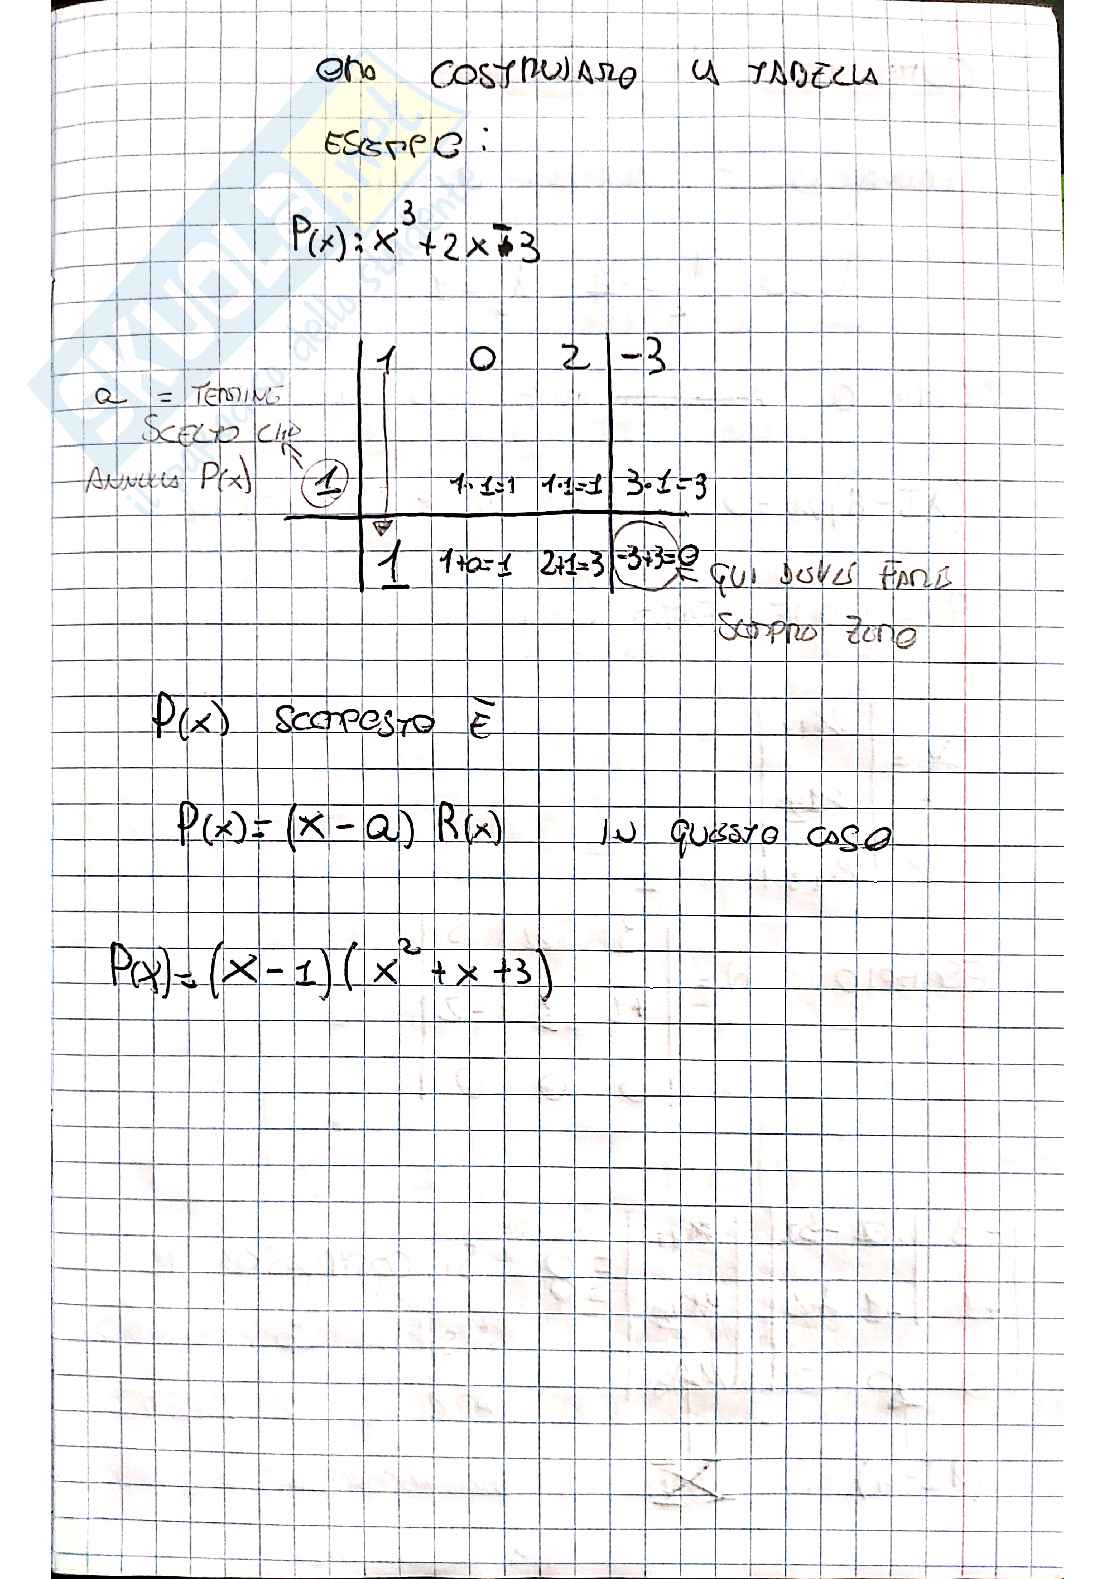 ORA COSTRUIAMO LA TABELLA
ESEMPIO:
P(x): x³ + 2x - 3
1 0 2 -3
a = TERMINE
SCELTO CHE
ANNULLA P(x)
1 1·1=1 1·1=1 3·1=3
1 1+0=1 2+1=3 -3+3=0
QUI DEVE FARE
SEMPRE ZERO
P(x) SCOMPOSTO È
P(x) = (x - a) R(x) IN QUESTO CASO
P(x) = (x - 1)(x² + x + 3)
SKUOLA.net
il paradiso dello studente